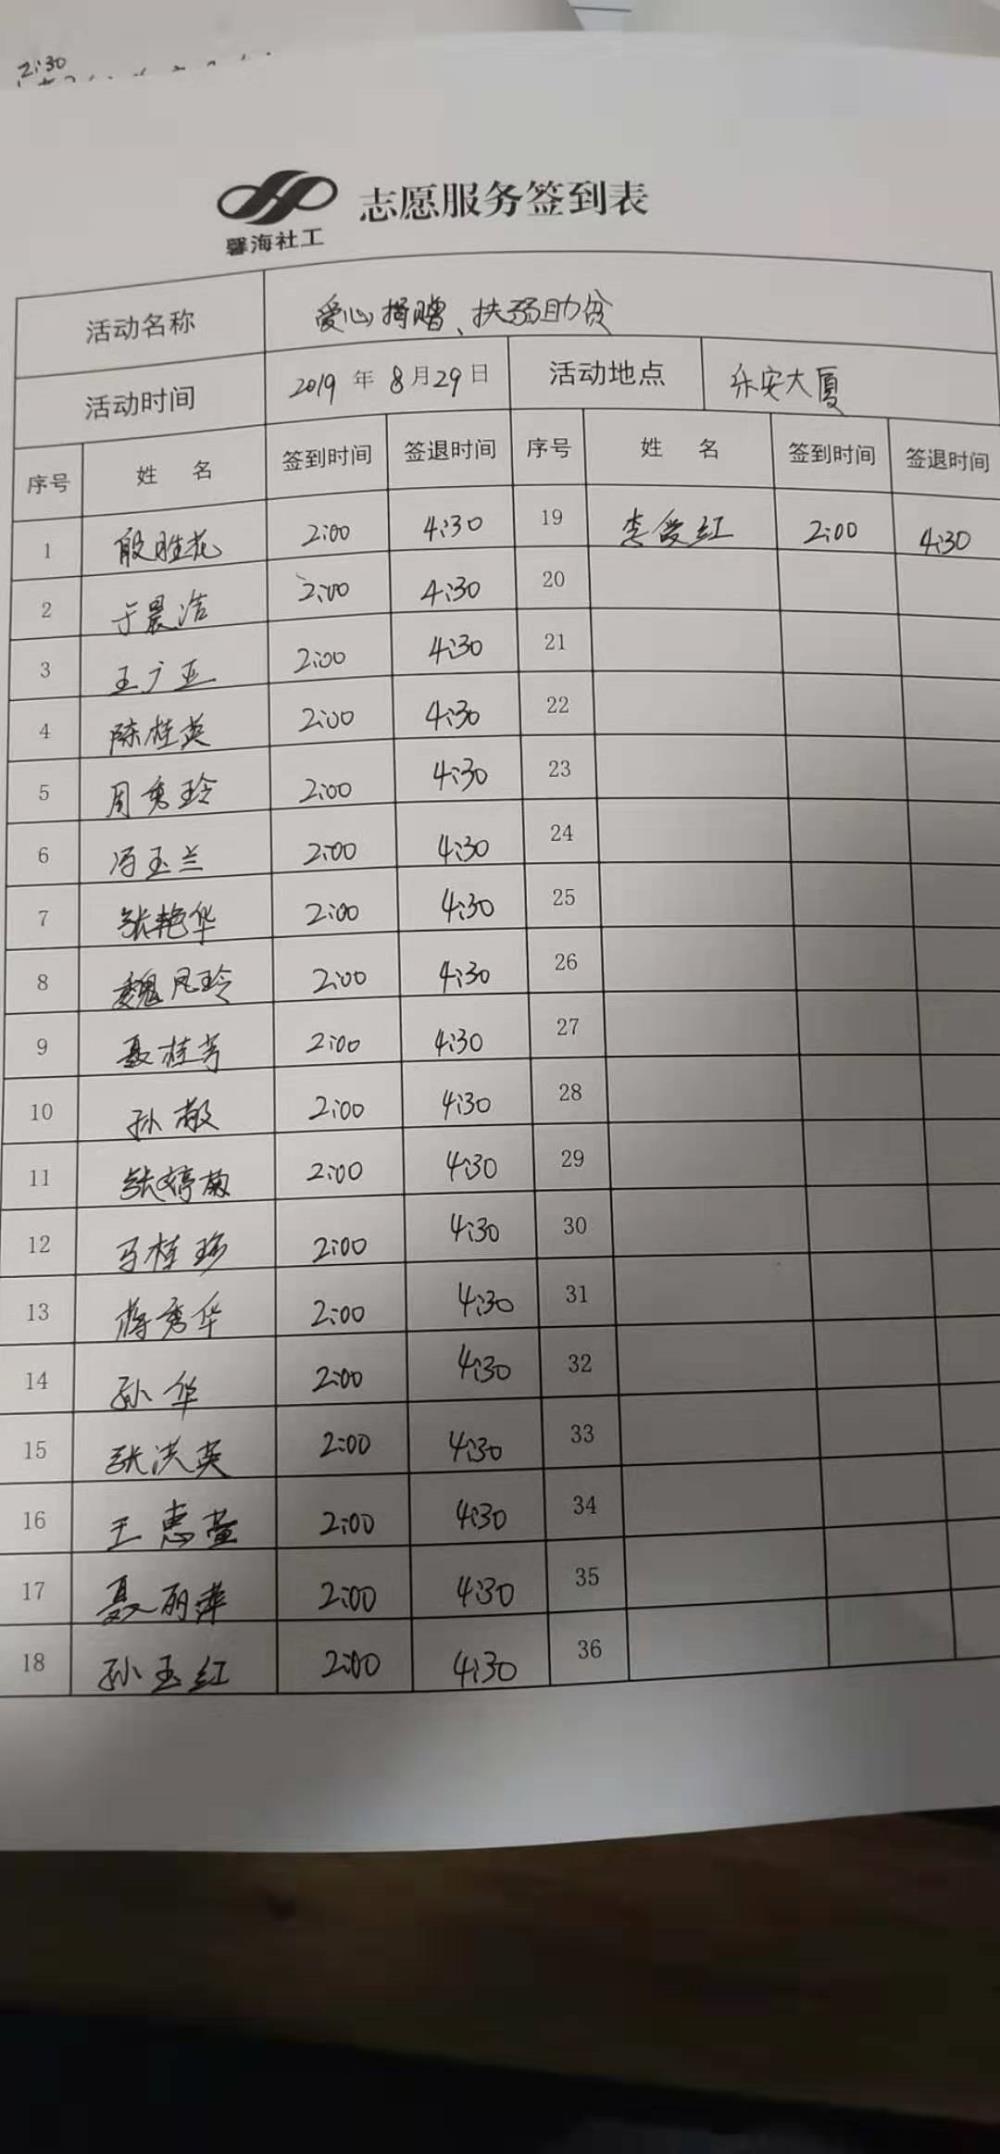 2:30
馨海社工 志愿服务签到表
活动名称 爱心捐赠、扶弱助贫
活动时间 2019年8月29日 活动地点 乐安大厦
序号 姓 名 签到时间 签退时间 序号 姓 名 签到时间 签退时间
1 殷胜花 2:00 4:30 19 李爱红 2:00 4:30
2 于晨浩 2:00 4:30 20
3 王广亚 2:00 4:30 21
4 陈桂英 2:00 4:30 22
5 周秀玲 2:00 4:30 23
6 冯玉兰 2:00 4:30 24
7 张艳华 2:00 4:30 25
8 魏凤玲 2:00 4:30 26
9 聂桂芳 2:00 4:30 27
10 孙敬 2:00 4:30 28
11 张婷菊 2:00 4:30 29
12 马桂珍 2:00 4:30 30
13 蒋秀华 2:00 4:30 31
14 孙华 2:00 4:30 32
15 张洪英 2:00 4:30 33
16 王惠萱 2:00 4:30 34
17 聂丽萍 2:00 4:30 35
18 孙玉红 2:00 4:30 36